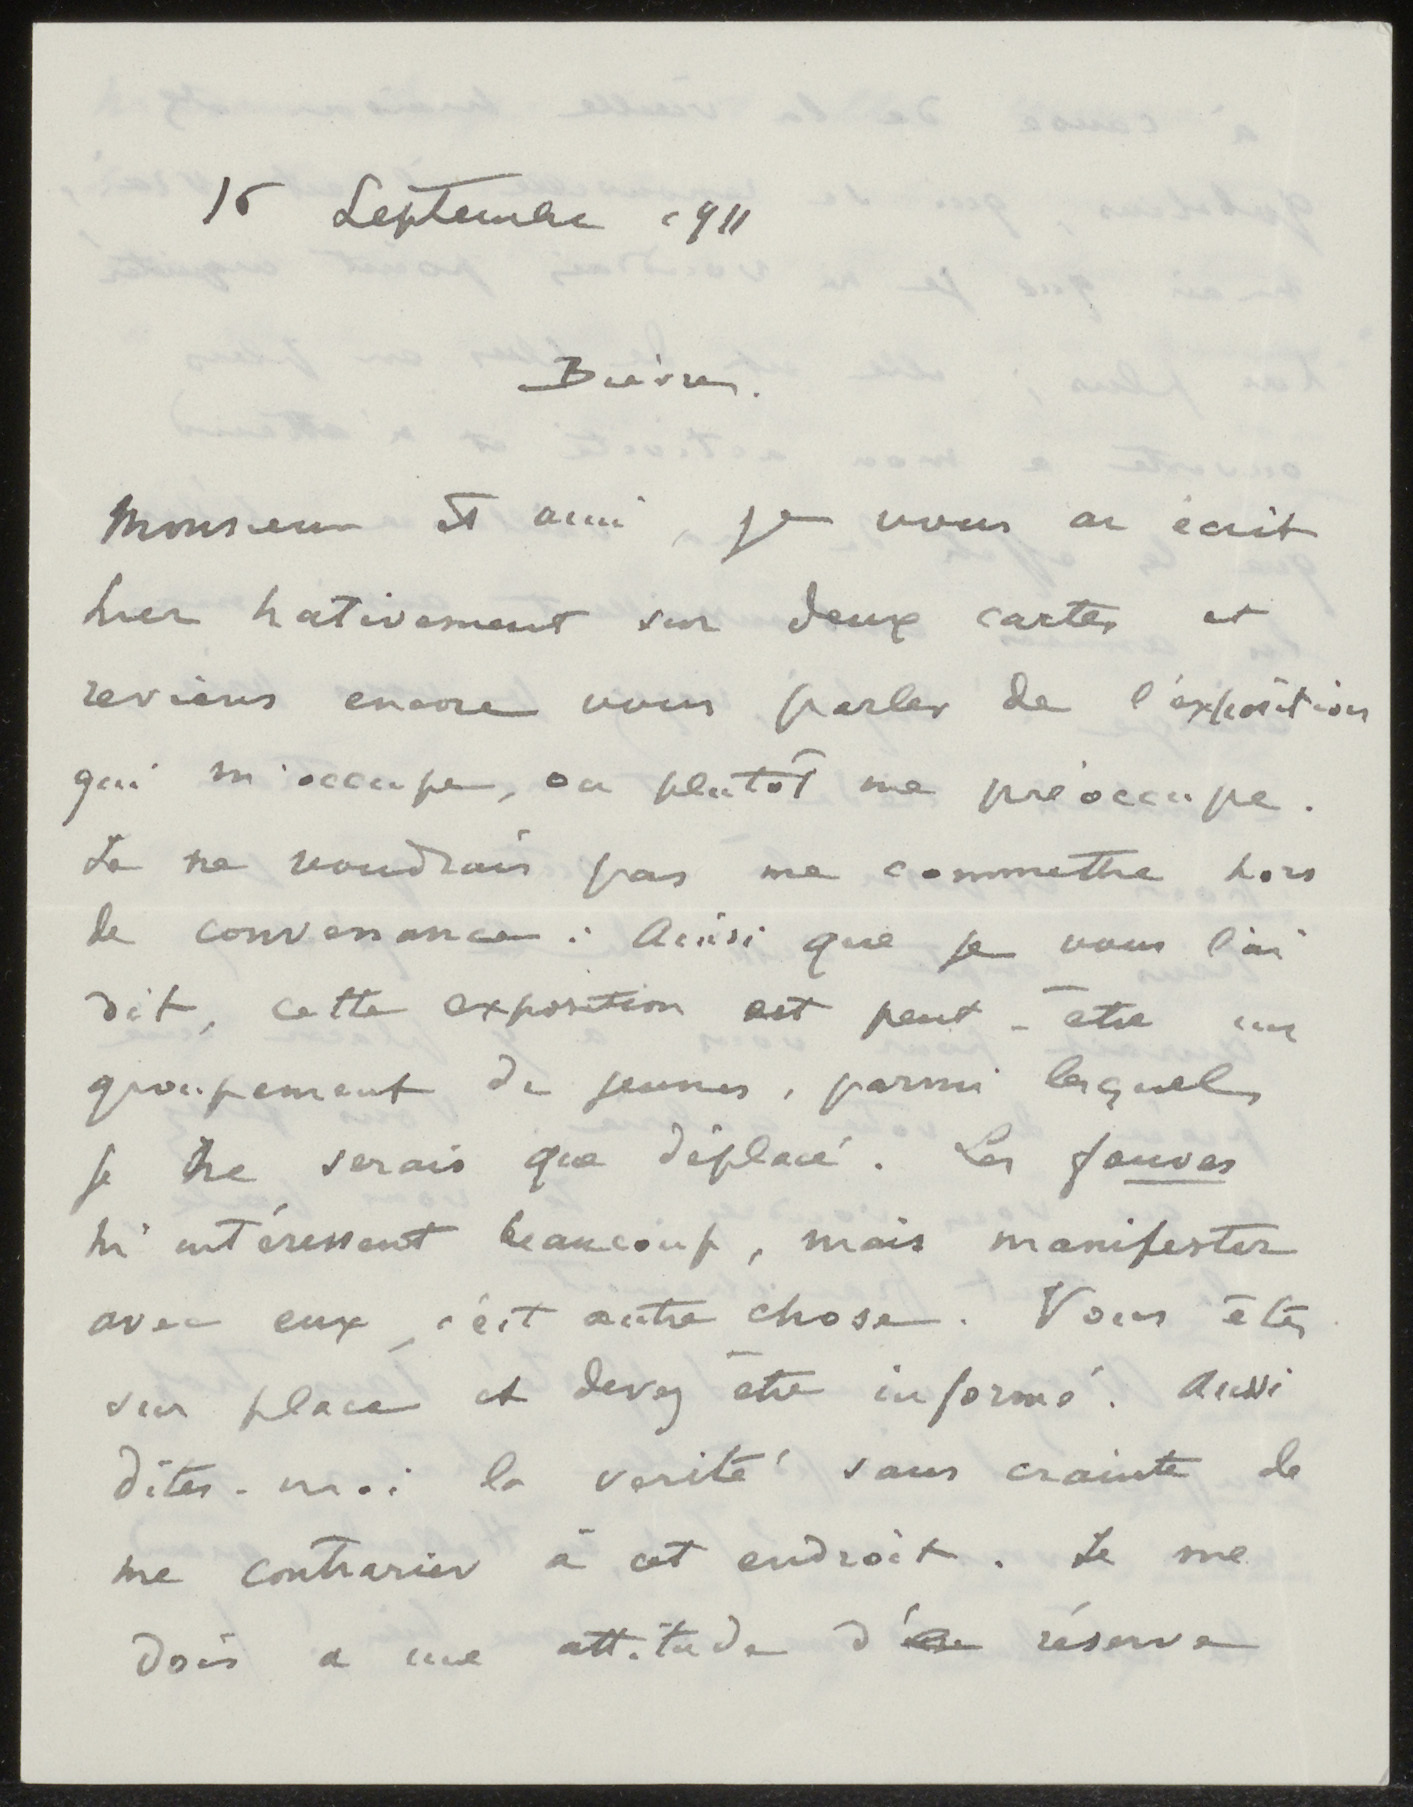 15 Septembre 1911
Bièvres.
Monsieur et ami je vous ai écrit
hier hativement sur deux cartes et
reviens encore vous parler de l'exposition
qui m'occupe, ou plutôt me préoccupe.
Je ne voudrais pas me commettre hors
de convenance : Ainsi que je vous l'ai
dit, cette exposition est peut-être un
groupement de jeunes, parmi lesquels
je ne serais que déplacé. Les fauves
m'intéressent beaucoup, mais manifester
avec eux, c'est autre chose. Vous êtes
sur place et devez être informé. Aussi
dîtes-moi la verité sans crainte de
me contrarier à cet endroit. Je me
dois a une attitude de réserve